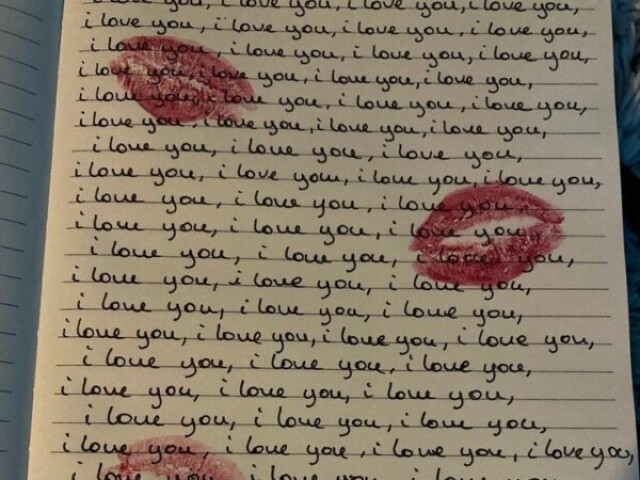 i love you, i love you, i love you, i love you,
i love you, i love you, i love you, i love you,
i love you, i love you, i love you, i love you,
i love you, i love you, i love you, i love you,
i love you, i love you, i love you, i love you,
i love you, i love you, i love you, i love you,
i love you, i love you, i love you,
i love you, i love you, i love you, i love you,
i love you, i love you, i love you,
i love you, i love you, i love you,
i love you, i love you, i love you,
i love you, i love you, i love you,
i love you, i love you, i love you,
i love you, i love you, i love you, i love you,
i love you, i love you, i love you,
i love you, i love you, i love you,
i love you, i love you, i love you,
i love you, i love you, i love you, i love you,
i love you, i love you, i love you